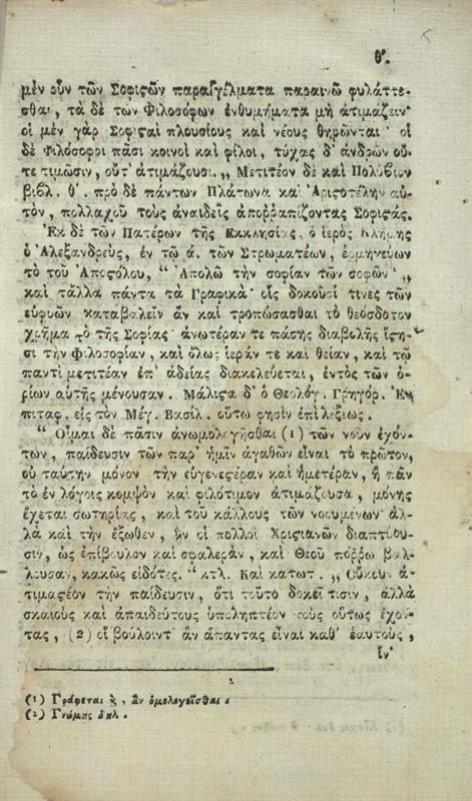 θ'.
μὲν οὖν τῶν Σοφιςῶν παραγγέλματα παραινῶ φυλάττε-
σθαι, τὰ δὲ τῶν Φιλοσόφων ἐνθυμήματα μὴ ἀτιμάζειν·
οἱ μὲν γὰρ Σοφιςαὶ πλουσίους καὶ νέους θηρῶνται· οἱ
δὲ Φιλόσοφοι πᾶσι κοινοὶ καὶ φίλοι, τύχας δ' ἀνδρῶν οὔ-
τε τιμῶσιν, οὔτ' ἀτιμάζουσι.,, Μετιτέον δὲ καὶ Πολύβιον
βιβλ. θ'. πρὸ δὲ πάντων Πλάτωνα καὶ Ἀριςοτέλην αὐ-
τὸν, πολλαχοῦ τοὺς ἀναιδεῖς ἀποῤῥαπίζοντας Σοφιςάς.
Ἐκ δὲ τῶν Πατέρων τῆς Εκκλησίας, ὁ ἱερὸς Κλήμης
ὁ Ἀλεξανδρεὺς, ἐν τῷ ά. τῶν Στρωματέων, ἑρμηνεύων
τὸ τοῦ Ἀποςόλου, " Ἀπολῶ τὴν σοφίαν τῶν σοφῶν ,,
καὶ τἄλλα πάντα τὰ Γραφικὰ· οἷς δοκοῦσί τινες τῶν
εὐφυῶν καταβαλεῖν ἂν καὶ τροπώσασθαι τὸ θεόσδοτον
χρῆμα τὸ τῆς Σοφίας· ἀνωτέραν τε πάσης διαβολῆς ἵςη-
σι τὴν Φιλοσοφίαν, καὶ ὅλως ἱεράν τε καὶ θείαν, καὶ τῷ
παντὶ μετιτέαν ἐπ' ἀδείας διακελεύεται, ἐντὸς τῶν ὁ-
ρίων αὐτῆς μένουσαν. Μάλιςα δ' ὁ Θεολόγ. Γρηγόρ. Ἐν
ἐπιταφ. εἰς τὸν Μέγ. Βασίλ. οὕτω φησὶν ἐπὶ λέξεως.
" Οἶμαι δὲ πᾶσιν ἀνωμολογῆσθαι (1) τῶν νοῦν ἐχόν-
των, παίδευσιν τῶν παρ' ἡμῖν ἀγαθῶν εἶναι τὸ πρῶτον,
οὐ ταύτην μόνον τὴν εὐγενεςέραν καὶ ἡμετέραν, ἣ πᾶν
τὸ ἐν λόγοις κομψὸν καὶ φιλότιμον ἀτιμάζουσα, μόνης
ἔχεται σωτηρίας, καὶ τοῦ κάλλους τῶν νοουμένων· ἀλ-
λὰ καὶ τὴν ἔξωθεν, ἣν οἱ πολλοὶ Χριςιανῶν διαπτύου-
σιν, ὡς ἐπίβουλον καὶ σφαλερὰν, καὶ Θεοῦ πόῤῥω βάλ-
λουσαν, κακῶς εἰδότες. " κτλ. Καὶ κατωτ. ,, Οὔκουν ἀ-
τιμαςέον τὴν παίδευσιν, ὅτι τοῦτο δοκεῖ τισιν, ἀλλὰ
σκαιοὺς καὶ ἀπαιδεύτους ὑποληπτέον τοὺς οὕτως ἔχον-
τας, (2) οἳ βούλοιντ' ἂν ἅπαντας εἶναι καθ' ἑαυτοὺς,
ἵν'
(1) Γράφεται ϗ, ἂν ὁμολογεῖσθαι.
(2) Γνώμης δηλ.